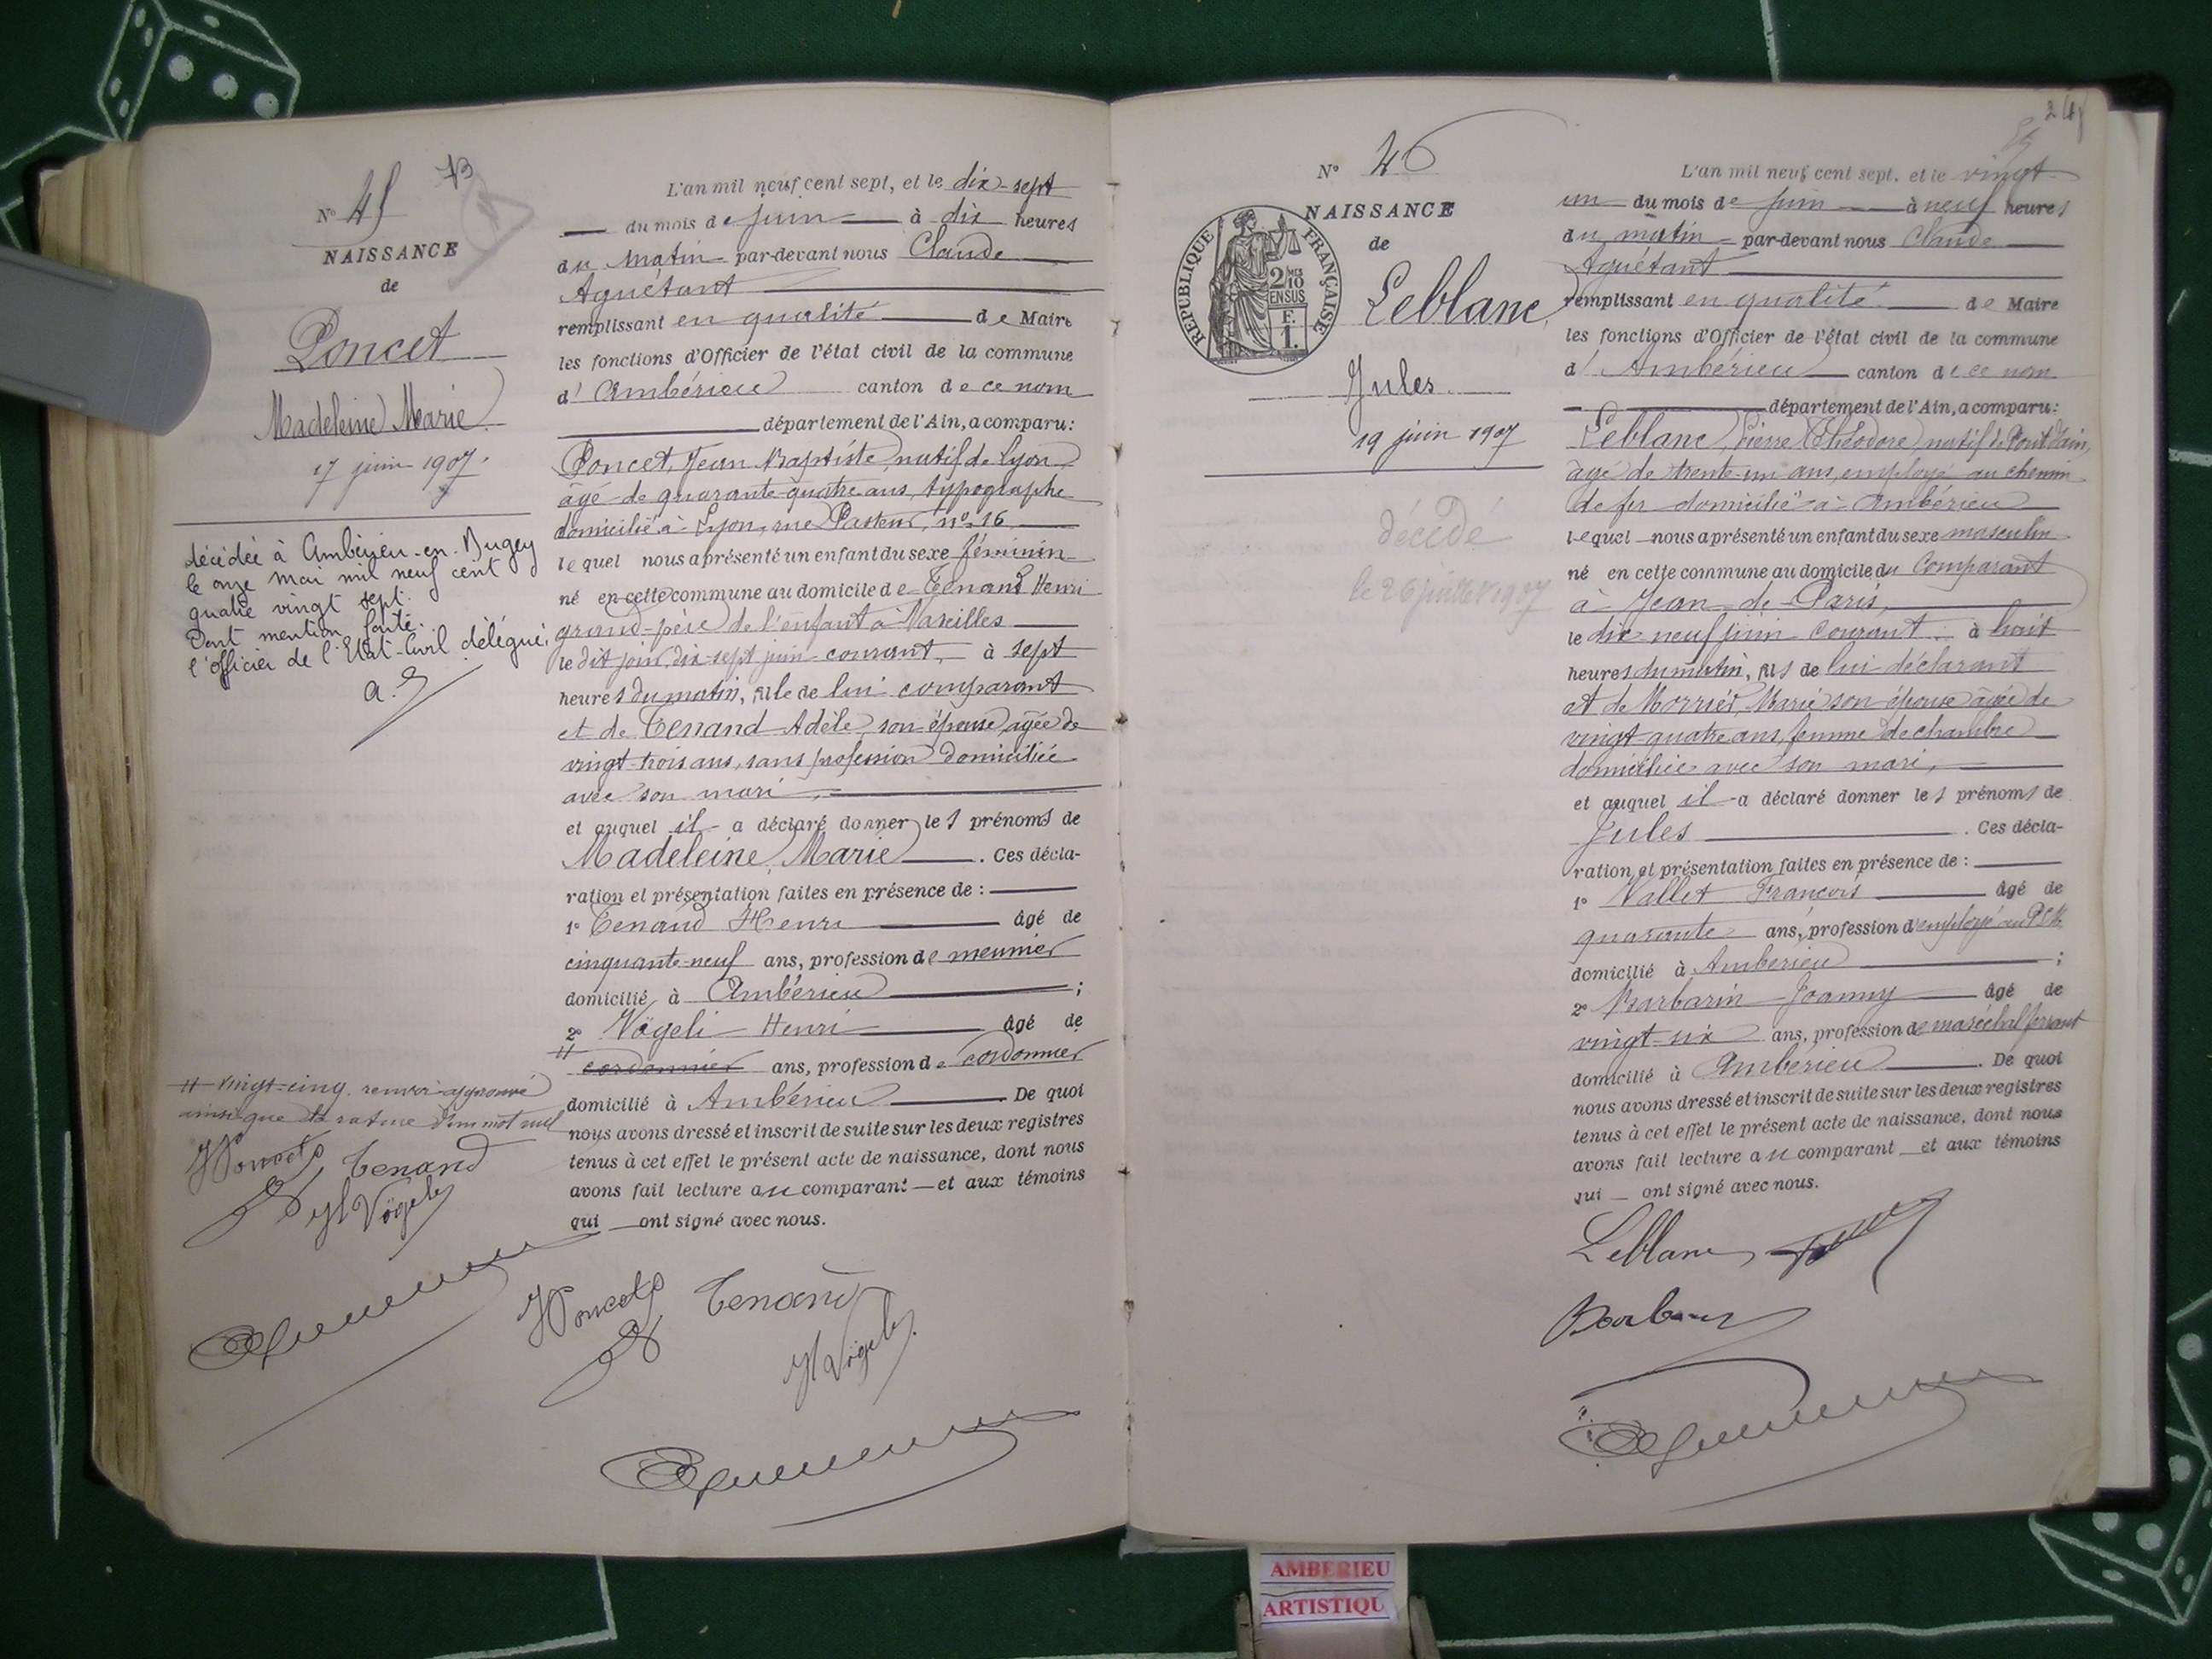 73
N° 45
NAISSANCE
de
Poncet
Madeleine Marie
17 juin 1907.
décédée à Ambérieu-en-Bugey
le onze mai mil neuf cent
quatre vingt sept.
Dont mention faite.
l'officier de l'Etat-Civil délégué.
L'an mil neuf cent sept, et le dix-sept
du mois de juin à dix heures
du matin par-devant nous Claude
Aguétant
remplissant en qualité de Maire
les fonctions d'Officier de l'état civil de la commune
d' Ambérieu canton de ce nom
département de l'Ain, a comparu:
Poncet, Jean Baptiste, natif de Lyon
âgé de quarante-quatre ans, typographe
domicilié à Lyon, rue Pasteur, n° 16
lequel nous a présenté un enfant du sexe féminin
né en cette commune au domicile de Tenand Henri
grand-père de l'enfant à Vareilles
le dit jour, dix-sept juin courant, à sept
heures du matin, fille de lui comparant
et de Tenand Adèle, son épouse, agée de
vingt-trois ans, sans profession domiciliée
avec son mari,
et auquel il a déclaré donner les prénoms de
Madeleine, Marie . Ces décla-
ration et présentation faites en présence de :
1° Tenand Henri âgé de
cinquante-neuf ans, profession de meunier
domicilié à Ambérieu ;
2° Vögeli Henri âgé de
# cordonnier ans, profession de cordonnier
domicilié à Ambérieu . De quoi
nous avons dressé et inscrit de suite sur les deux registres
tenus à cet effet le présent acte de naissance, dont nous
avons fait lecture au comparant et aux témoins
qui ont signé avec nous.
# vingt-cinq. renvoi approuvé
ainsi que la rature d'un mot nul
JPoncet Tenand
H Vögeli
JPoncet Tenand
H Vögeli
N° 46
NAISSANCE
de
Leblanc,
Jules
19 juin 1907
RÉPUBLIQUE FRANÇAISE
2/10 MES
EN SUS
F.
1.
décédé
le 26 juillet 1907
L'an mil neuf cent sept, et le vingt
un du mois de juin à neuf heures
du matin par-devant nous Claude
Aguétant
remplissant en qualité de Maire
les fonctions d'Officier de l'état civil de la commune
d' Ambérieu canton de ce nom
département de l'Ain, a comparu:
Leblanc, Pierre Théodore, natif de Pont d'Ain,
agé de trente-un ans, employé au chemin
de fer domicilié à Ambérieu
lequel nous a présenté un enfant du sexe masculin
né en cette commune au domicile du comparant
à Jean de Paris,
le dix neuf juin courant à huit
heures du matin, fils de lui déclarant
et de Morrier, Marie son épouse agée de
vingt-quatre ans, femme de chambre
domiciliée avec son mari,
et auquel il a déclaré donner les prénoms de
Jules . Ces décla-
ration et présentation faites en présence de :
1° Vallet François âgé de
quarante ans, profession d'employé au PLM
domicilié à Ambérieu ;
2° Barbarin Joanny âgé de
vingt-six ans, profession de maréchal ferrant
domicilié à Ambérieu . De quoi
nous avons dressé et inscrit de suite sur les deux registres
tenus à cet effet le présent acte de naissance, dont nous
avons fait lecture au comparant et aux témoins
qui ont signé avec nous.
Leblanc
AMBERIEU
ARTISTIQU